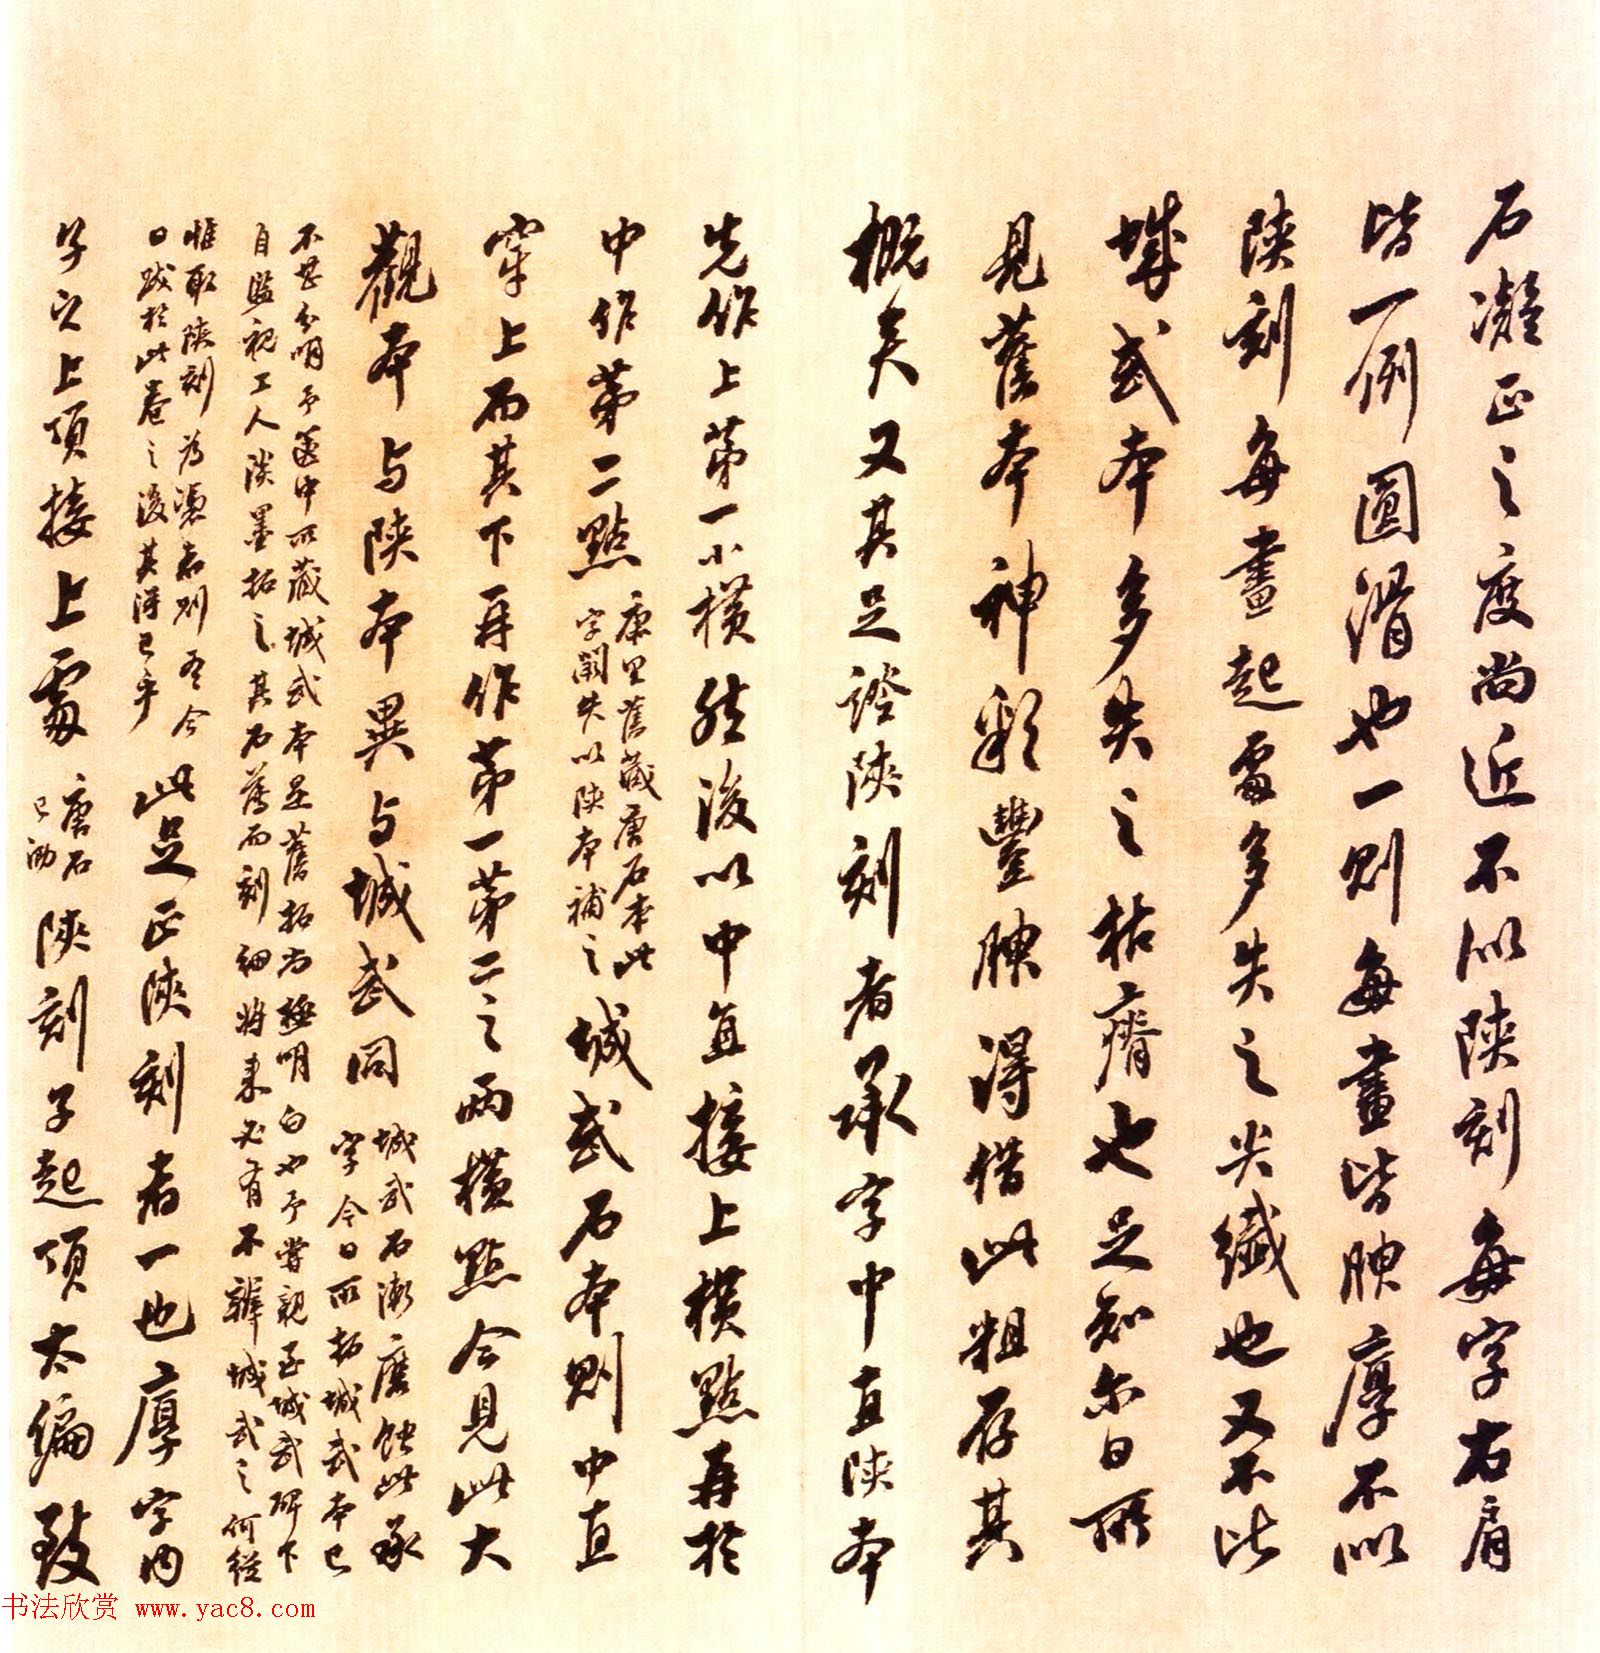 石凝正之度尚近不似陝刻每字右肩
皆一例圓滑也一則每畫皆腴厚不似
陝刻每畫起處多失之尖纖也又不比
城武本多失之枯瘠也足知尔日所
見舊本神彩豐腴得借此粗存其
概矣又其足證陝刻者承字中直陝本
先作上第一小橫然後以中直接上橫點再於
中作第二點
康里舊藏唐石本此
字闕失以陝本補之
城武石本則中直
穿上而其下再作第一第二之兩橫點今見此大
觀本与陝本異与城武同
城武石漸磨蝕此承
字今日所拓城武本已
不甚分明予篋中所藏城武本是舊拓尚極明白也予嘗親至城武碑下
自監視工人淡墨拓之其石舊而刻細將来必有不辨城武之何從
惟取陝刻為憑者則吾今
日跋於此卷之後其得已乎
此足正陝刻者一也厚字內
子之上項接上處
唐石
已泐
陝刻子起項太偏致
书法欣赏 www.yac8.com